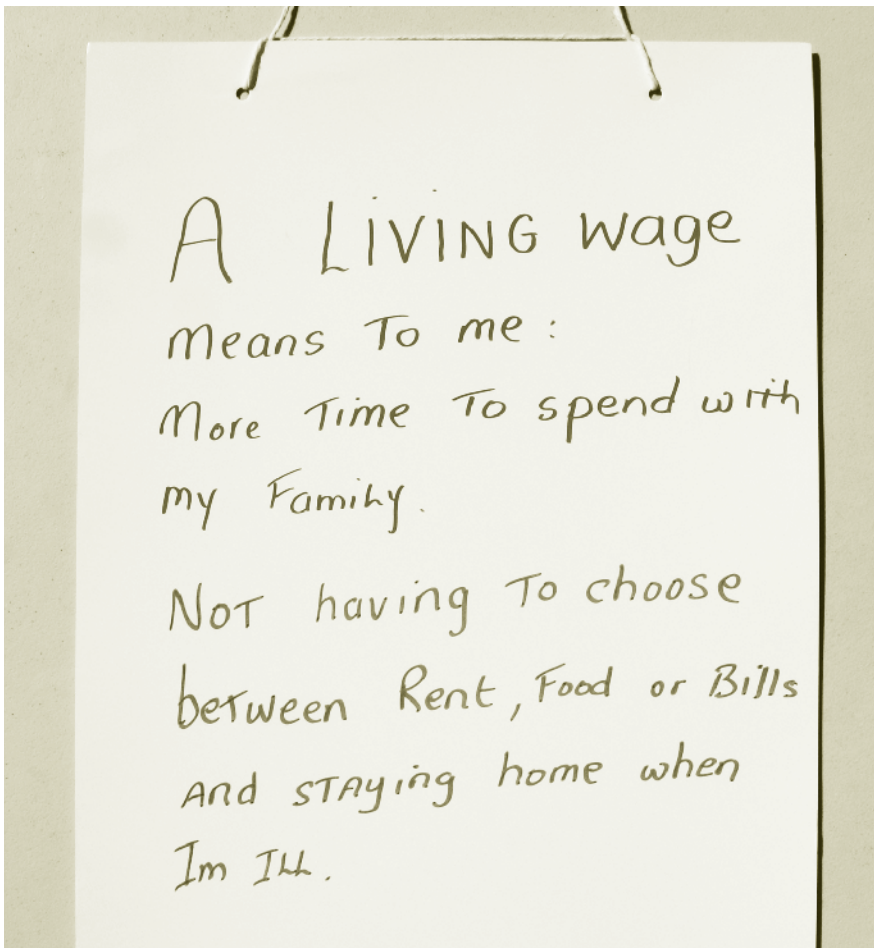 A LiVING wage
Means To me :
More Time To spend with
my Family.
NoT having To choose
beTween Rent, Food or Bills
And STAying home when
Im Ill.